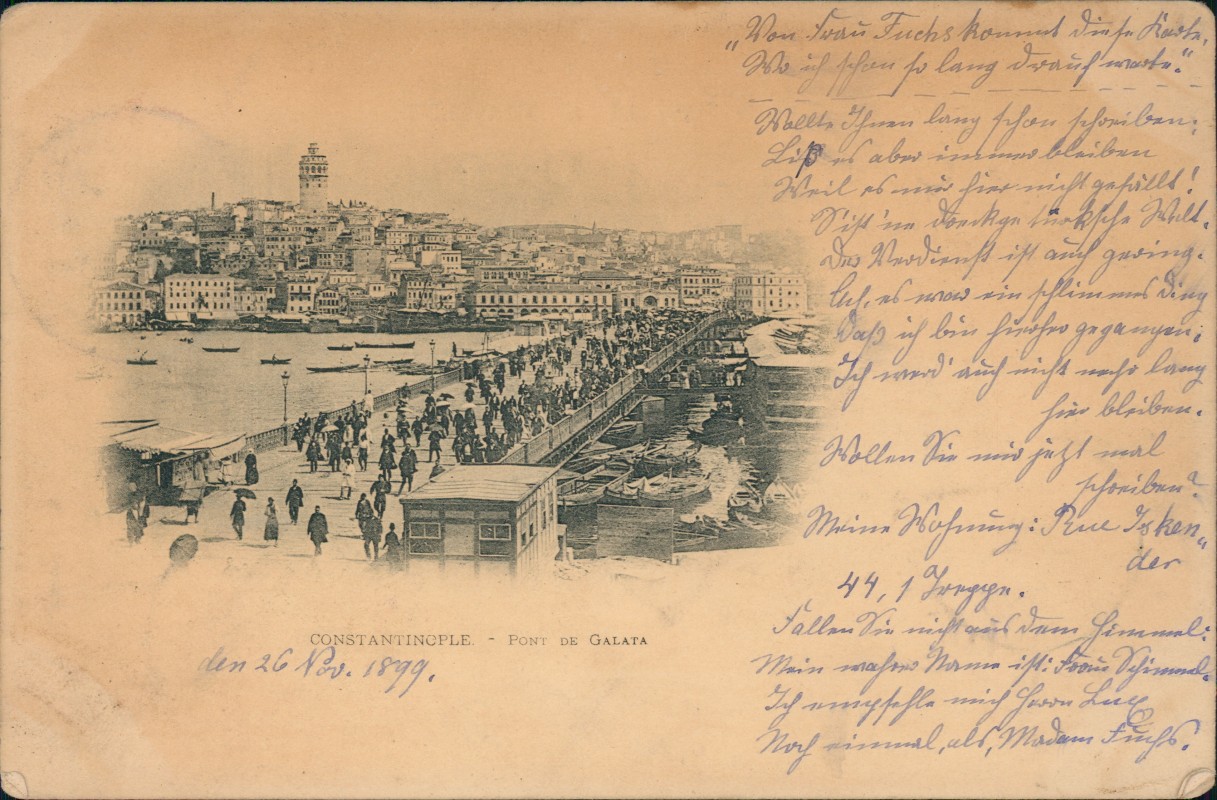 CONSTANTINOPLE. - PONT DE GALATA
den 26 Nov. 1899.
„Von Frau Fuchs kommt diese Karte,
Wo ich schon so lang drauf warte."
Wollte Ihnen lang schon schreiben;
Liß es aber immer bleiben
Weil es mir hier nicht gefällt!
S'ist 'ne dreckge türksche Welt.
Der Verdienst ist auch gering-
lich, es war ein schlimmes Ding
Daß ich bin hierher gegangen;
Ich werd' auch nicht mehr lang
hier bleiben.
Wollen Sie mir jetzt mal
schreiben?
Meine Wohnung: Rue Isken„
der
44, 1 Treppe.
Fallen Sie nicht aus dem Himmel:
Mein wahrer Name ist: Frau Schimmel.
Ich empfehle mich Herrn Lux
Noch einmal, als, Madam Fuchs.